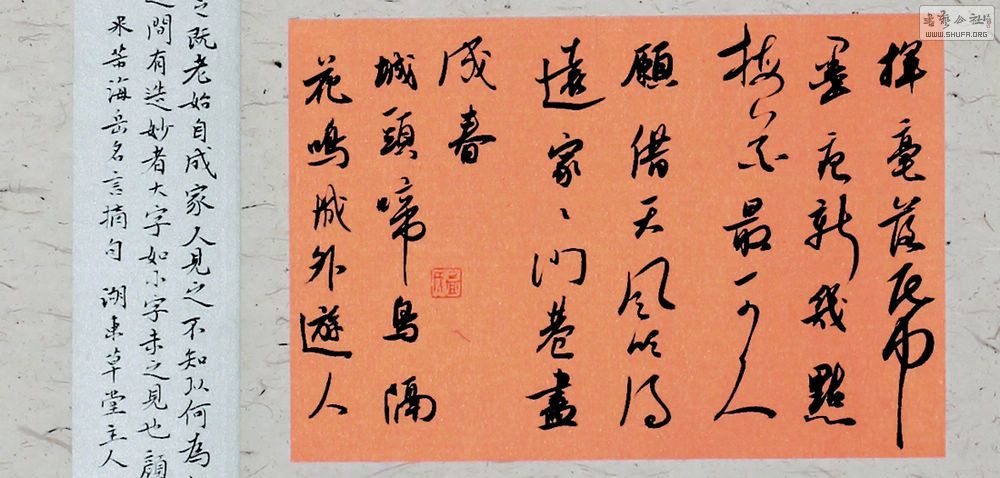 揮毫落帋
墨痕新幾點
梅花最可人
願借天風吹得
遠家〻門巷盡
成春
城頭啼鳥隔
花鳴城外遊人
既老始自成家人見之不知以何為
間有造妙者大字如小字未之見也顏
米芾海岳名言摘句 湖東草堂主人
书艺公社
WWW.SHUFA.ORG